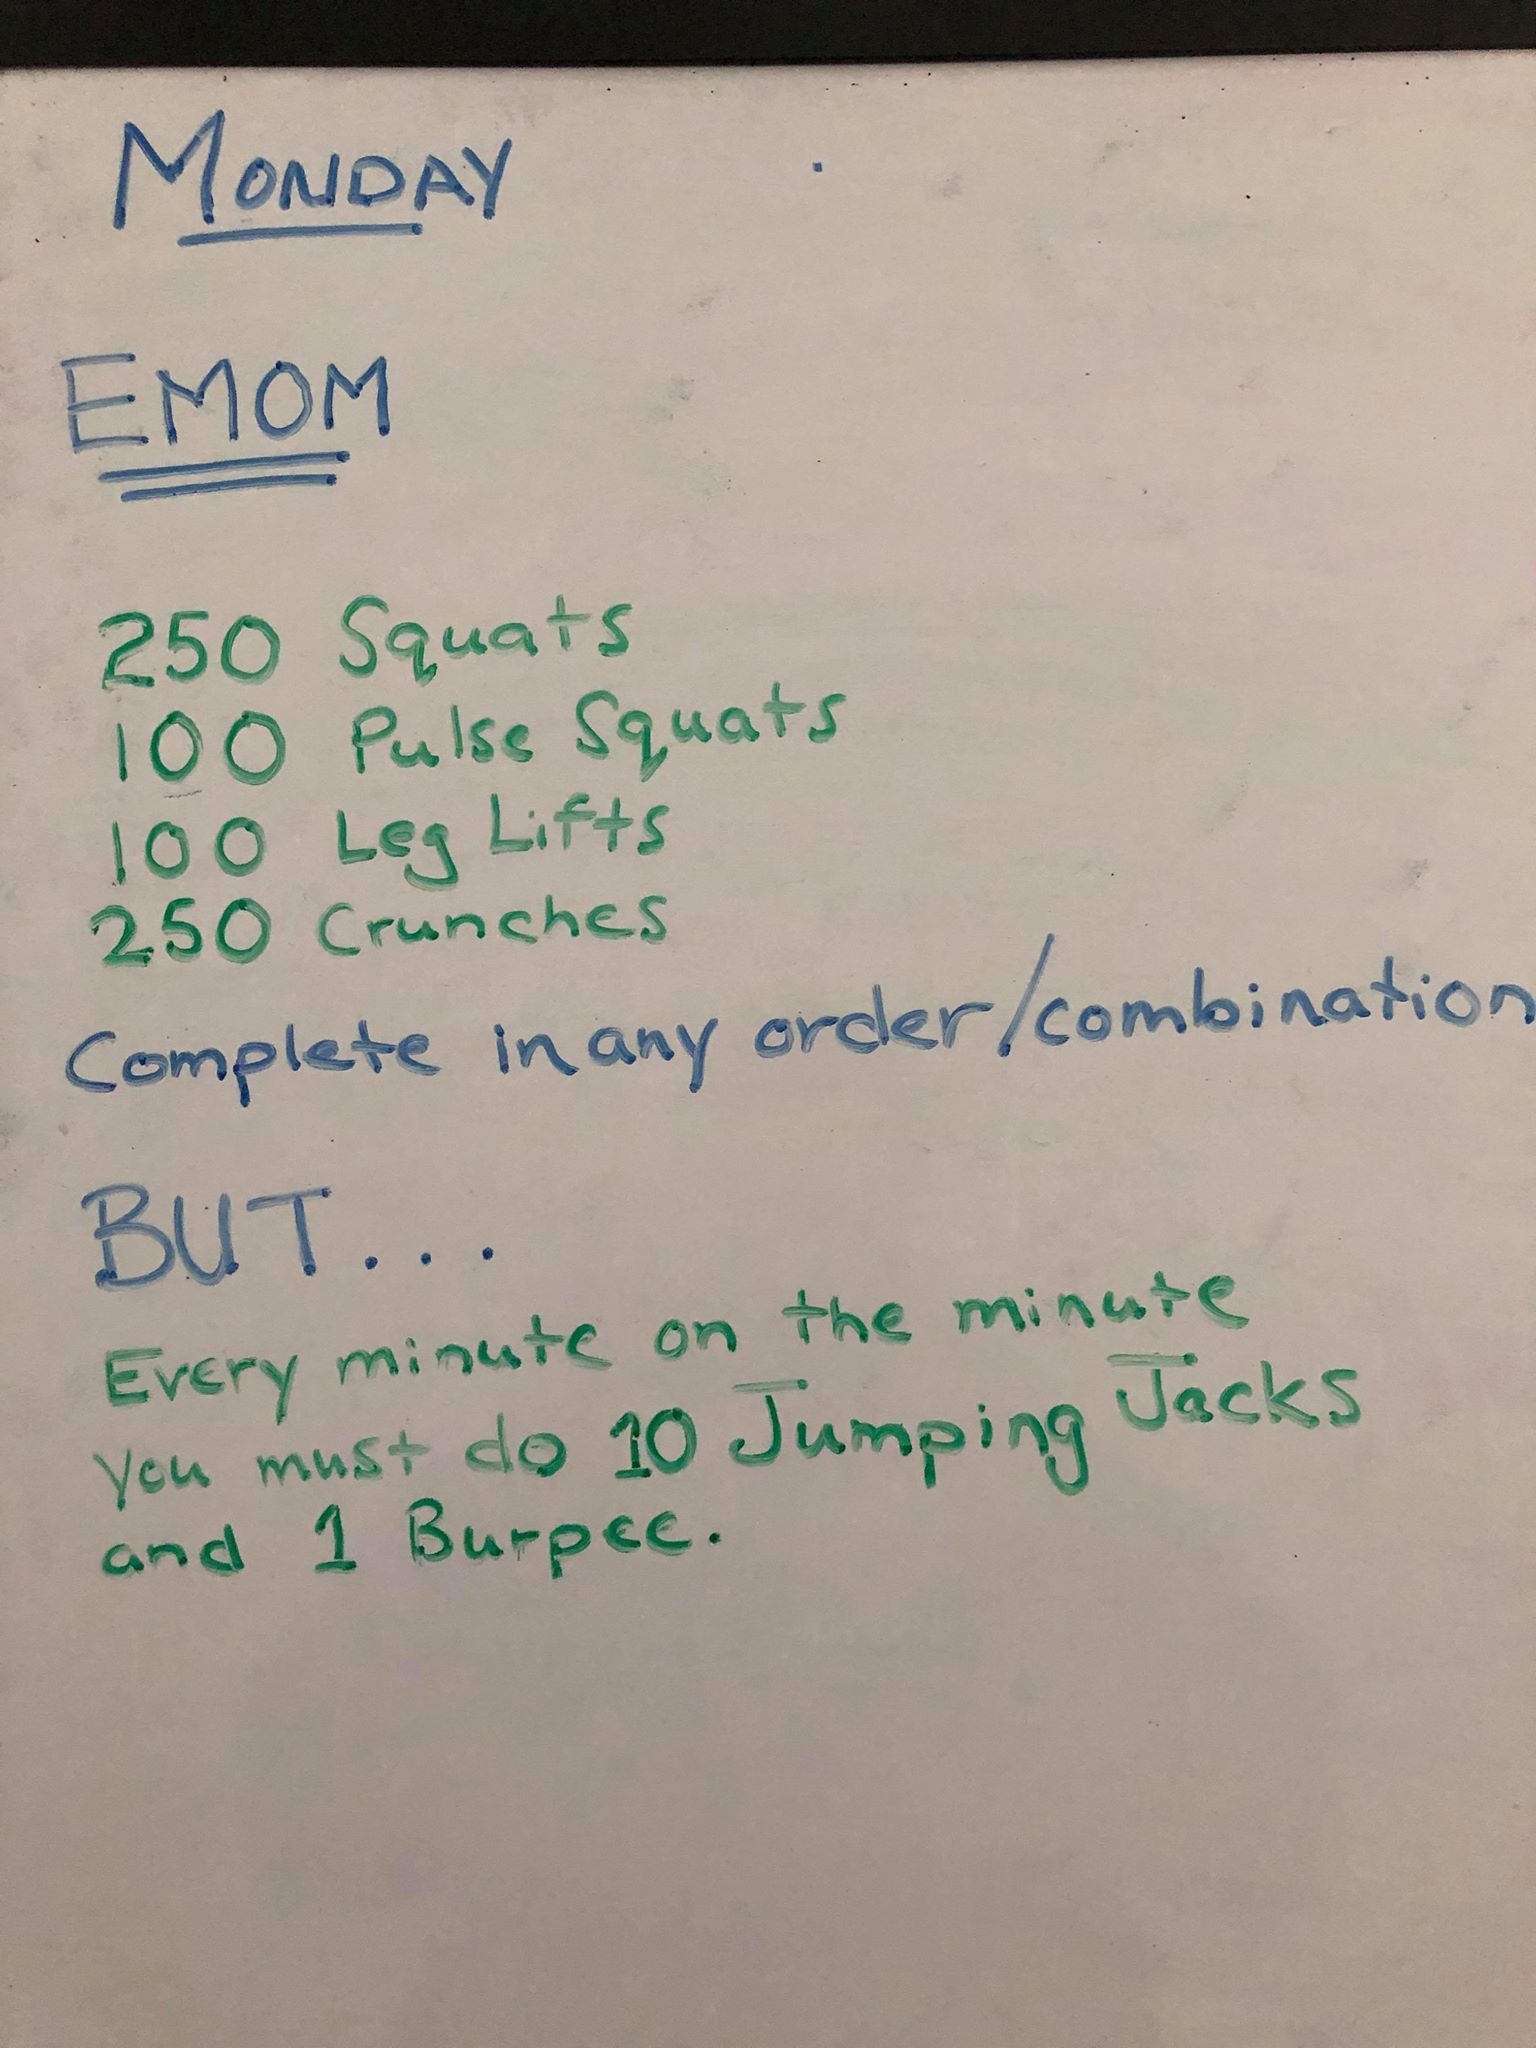 MONDAY
EMOM
250 Squats
100 Pulse Squats
100 Leg Lifts
250 Crunches
Complete in any order/combination
BUT...
Every minute on the minute
you must do 10 Jumping Jacks
and 1 Burpee.